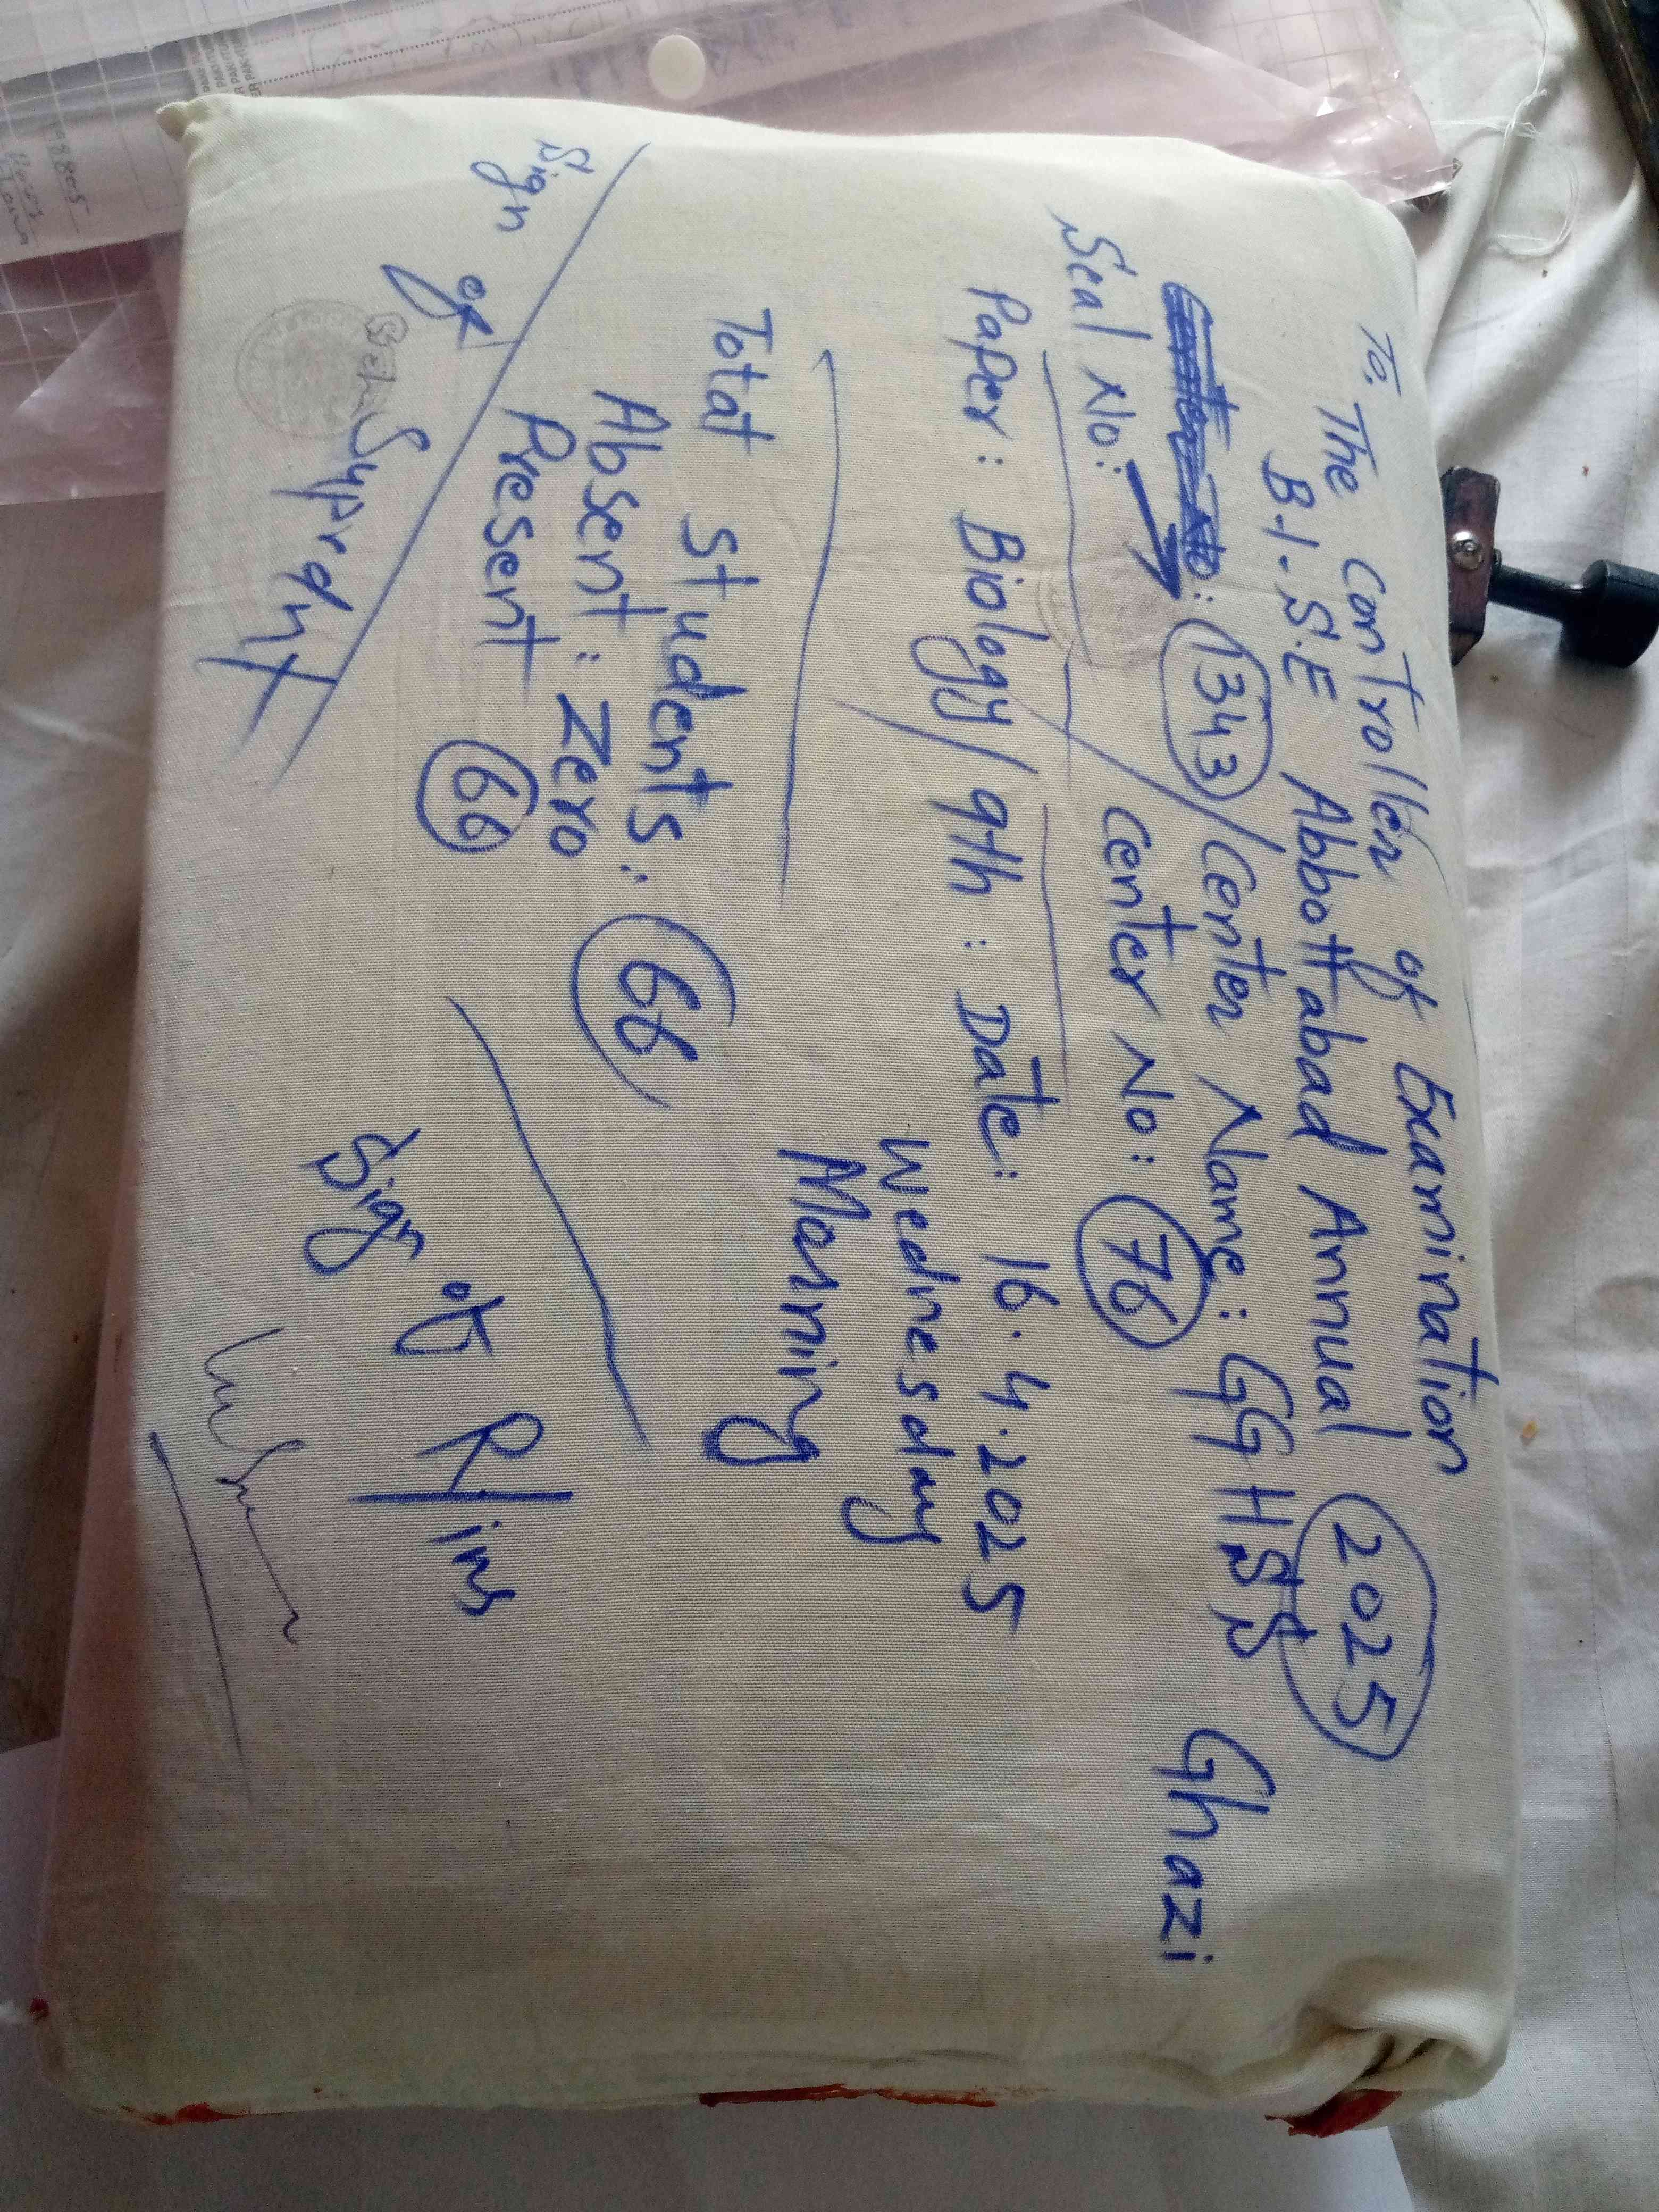 To. The Controller of Examination
B.I.S.E Abbottabad Annual 2025
Center No: 1343 / Center Name: GGHSS Ghazi
Seal No: Center No: 76
Paper: Biology / 9th : Date: 16.4.2025
Wednesday
Morning
Total Students: 66
Absent: Zero
Present 66
Sign of Suprdnt
Sign of R/ins